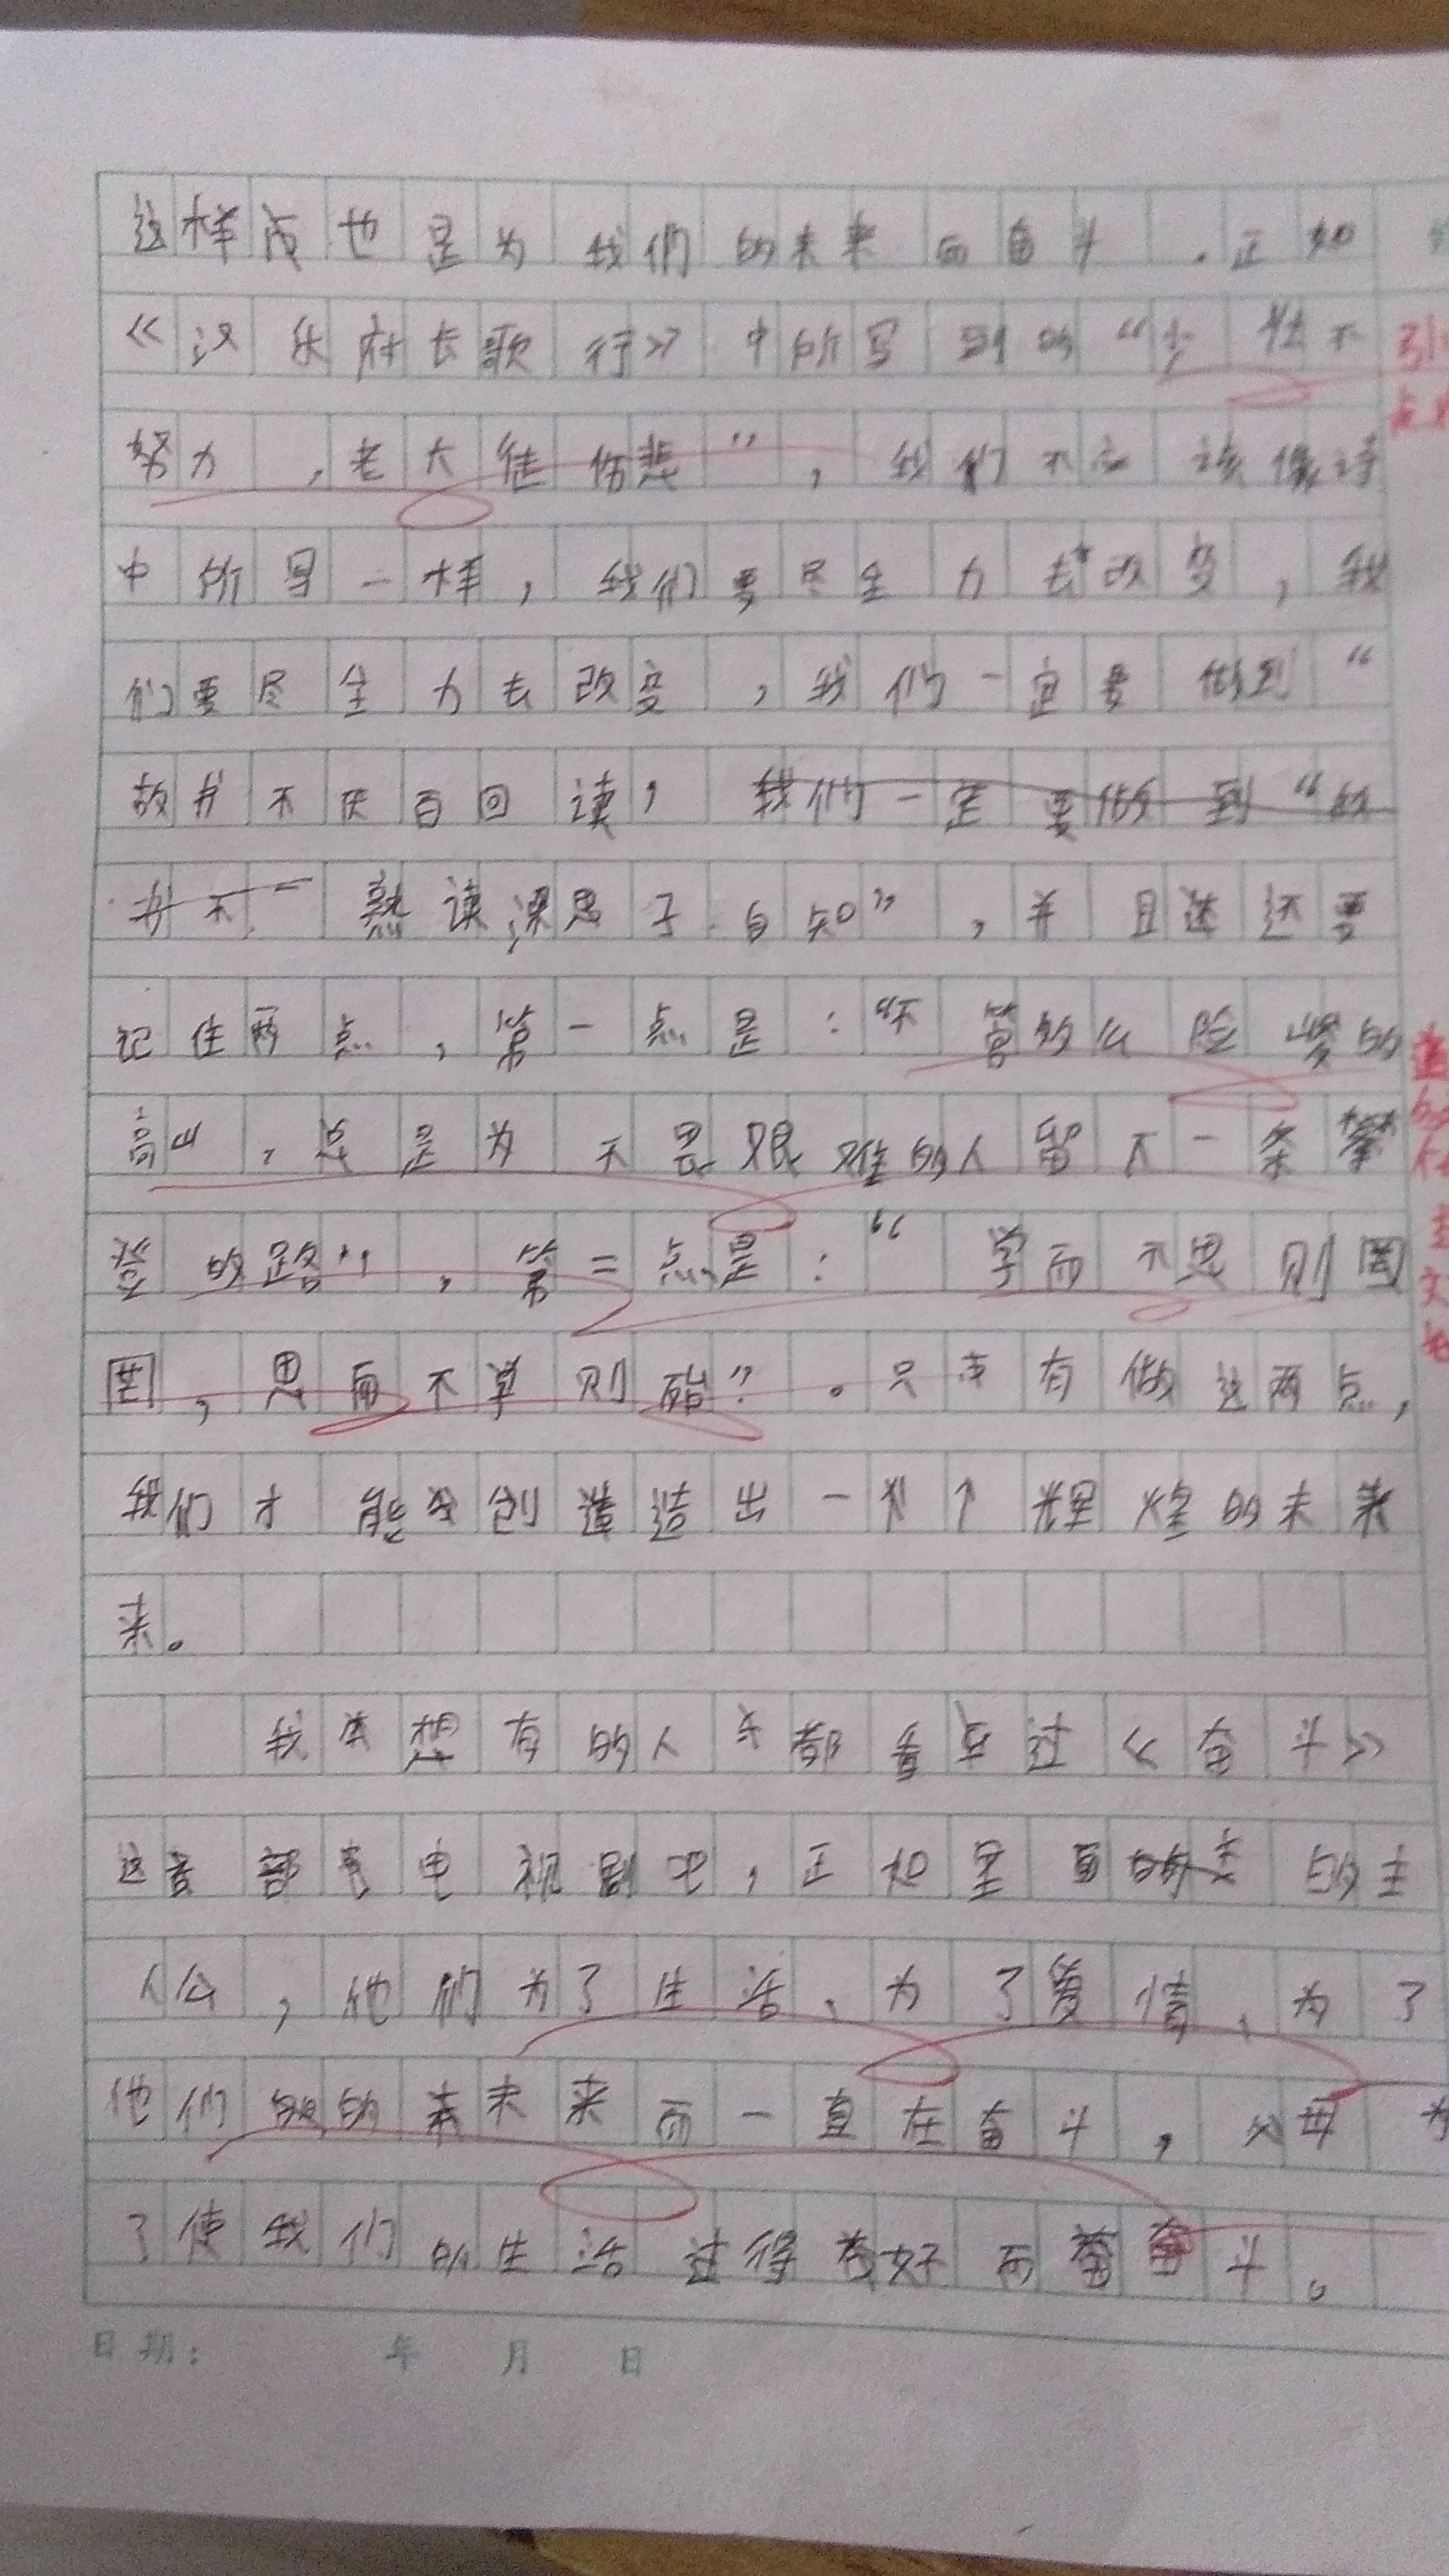 这样成也是为我们的未来而奋斗．正如
《汉乐府长歌行》中所写到的“少壮不
努力，老大徒伤悲”，我们不应该像诗
中所写一样，我们要尽全力去改变，我
们要尽全力去改变，我们一定要做到“
故书不厌百回读，我们一定要做到“故
书不 熟读深思子自知”，并且还要
记住两点，第一点是：“不管多么险峻的
高山，总是为不畏艰难的人留下一条攀
登的路”，第二点是：“学而不思则罔
，思而不学则殆”。只有做这两点，
我们才能创造出一个辉煌的未来
来。
我想有的人都看过《奋斗》
这部电视剧吧，正如里面的主
人公，他们为了生活、为了爱情、为了
他们的未来而一直在奋斗，父母为
了使我们的生活过得好而奋斗。
日期： 年 月 日
引
文